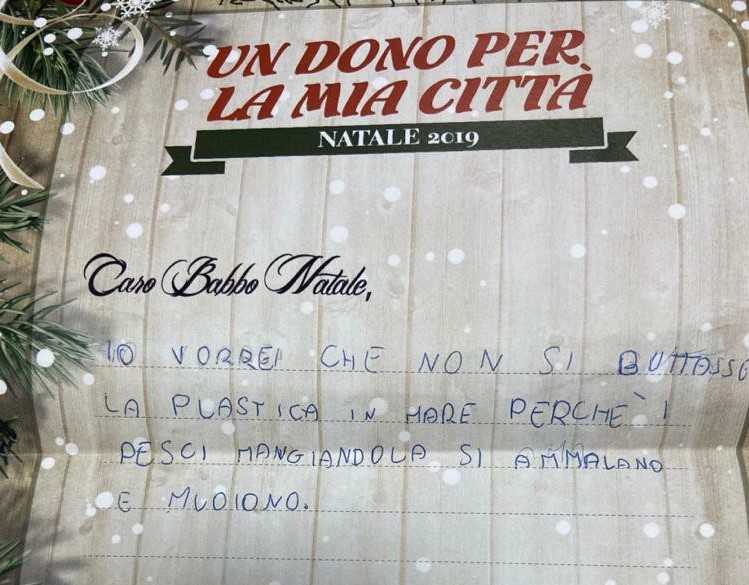 UN DONO PER
LA MIA CITTÀ
NATALE 2019
Caro Babbo Natale,
IO VORREI CHE NON SI BUTTASSE
LA PLASTICA IN MARE PERCHÈ I
PESCI MANGIANDOLA SI AMMALANO
E MUOIONO.